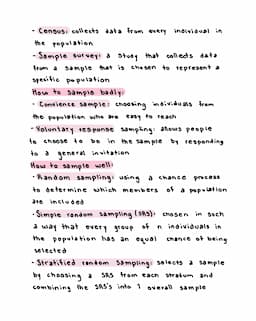 - Census: collects data from every individual in
the population
- Sample survey: a study that collects data
from a sample that is chosen to represent a
specific population
How to sample badly:
- Convience sample: choosing individuals from
the population who are easy to reach
- Voluntary response sampling: allows people
to choose to be in the sample by responding
to a general invitation
How to sample well:
- Random sampling: using a chance process
to determine which members of a population
are included
- Simple random sampling (SRS): chosen in such
a way that every group of n individuals in
the population has an equal chance of being
selected
- Stratified random sampling: selects a sample
by choosing a SRS from each stratum and
combining the SRS's into 1 overall sample